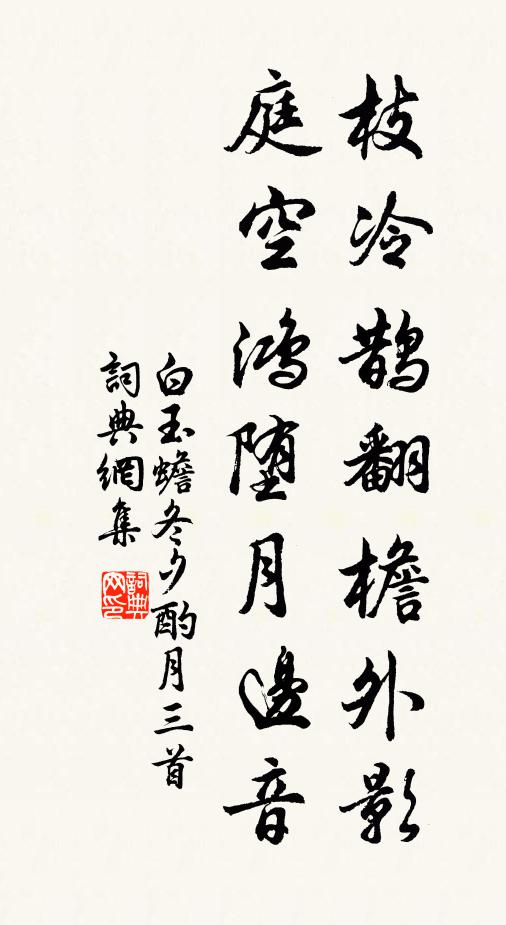 枝冷鹊翻檐外影
庭空鸿堕月邊音
白玉蟾冬夕酌月三首
詞典網集
詞典网印